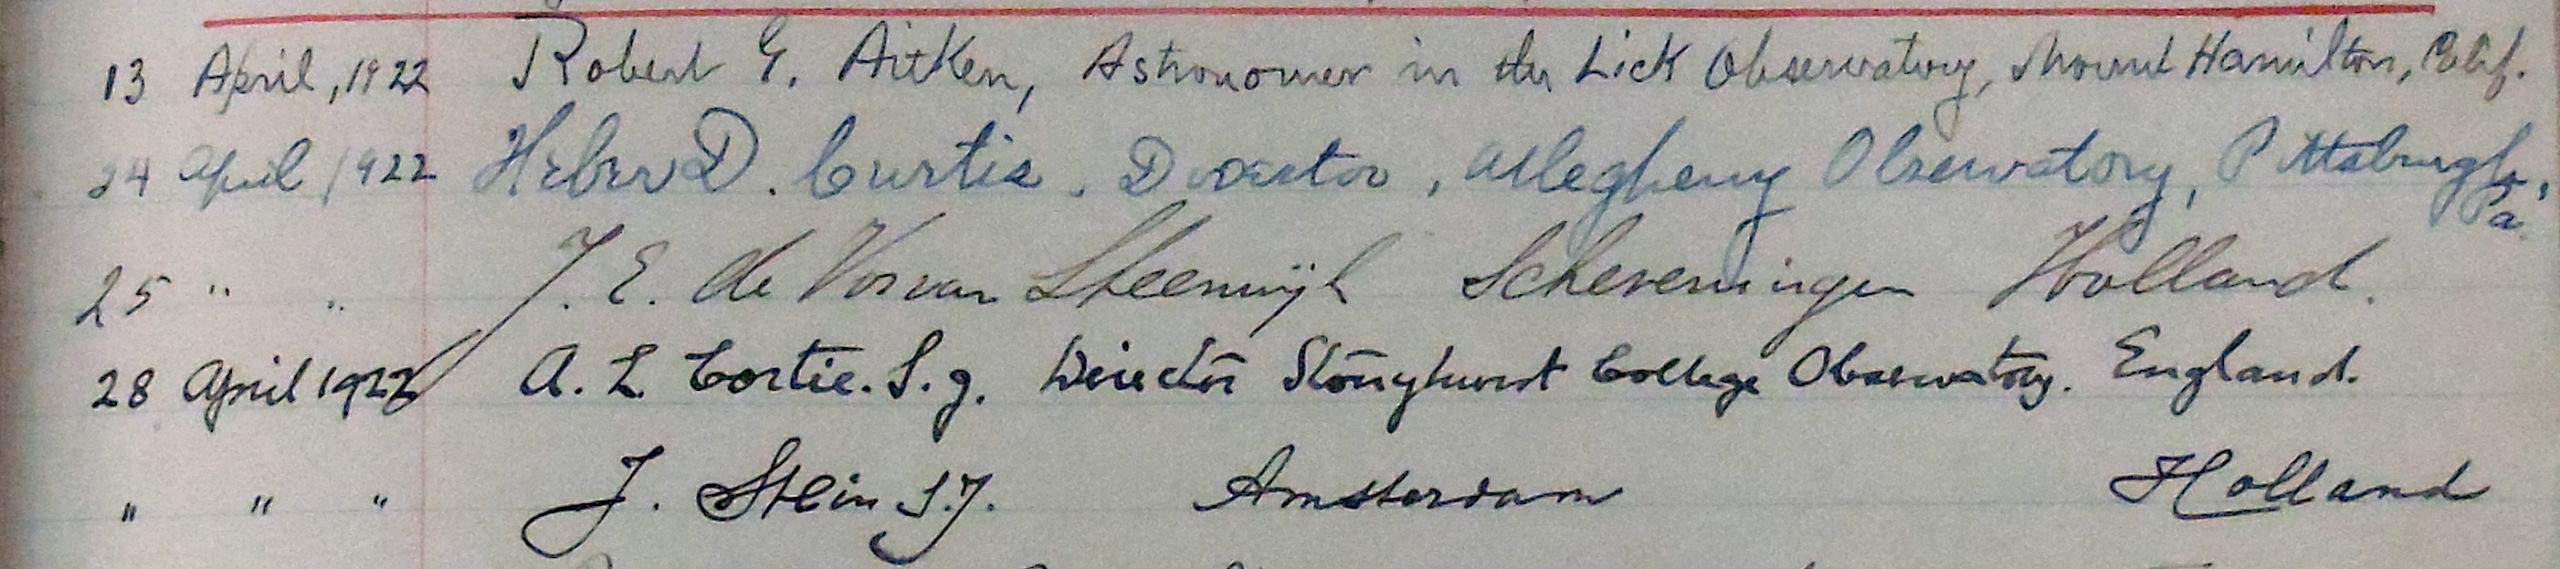 13 April, 1922 Robert G. Aitken, Astronomer in the Lick Observatory, Mount Hamilton, Calif.
24 April 1922 Heber D. Curtis. Director, Allegheny Observatory, Pittsburgh, Pa.
25 " " J. E. de Vos van Steenwijk Scheveningen Holland.
28 April 1922 A. L. Cortie. S.J. Director Stonyhurst College Observatory. England.
" " " J. Stein S.J. Amsterdam Holland